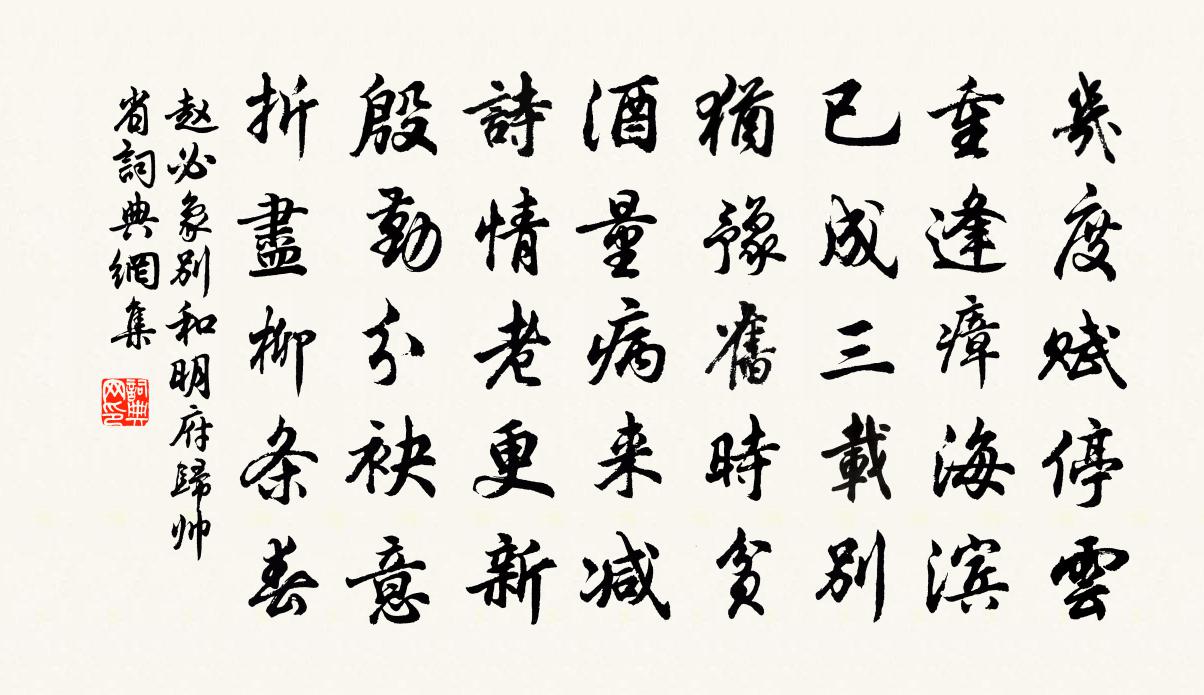 幾度賦停雲
重逢瘴海滨
已成三載別
猶豫舊時貧
酒量病来减
詩情老更新
殷勤分袂意
折盡柳条春
赵必象別和明府歸帅
省詞典網集
詞典网印